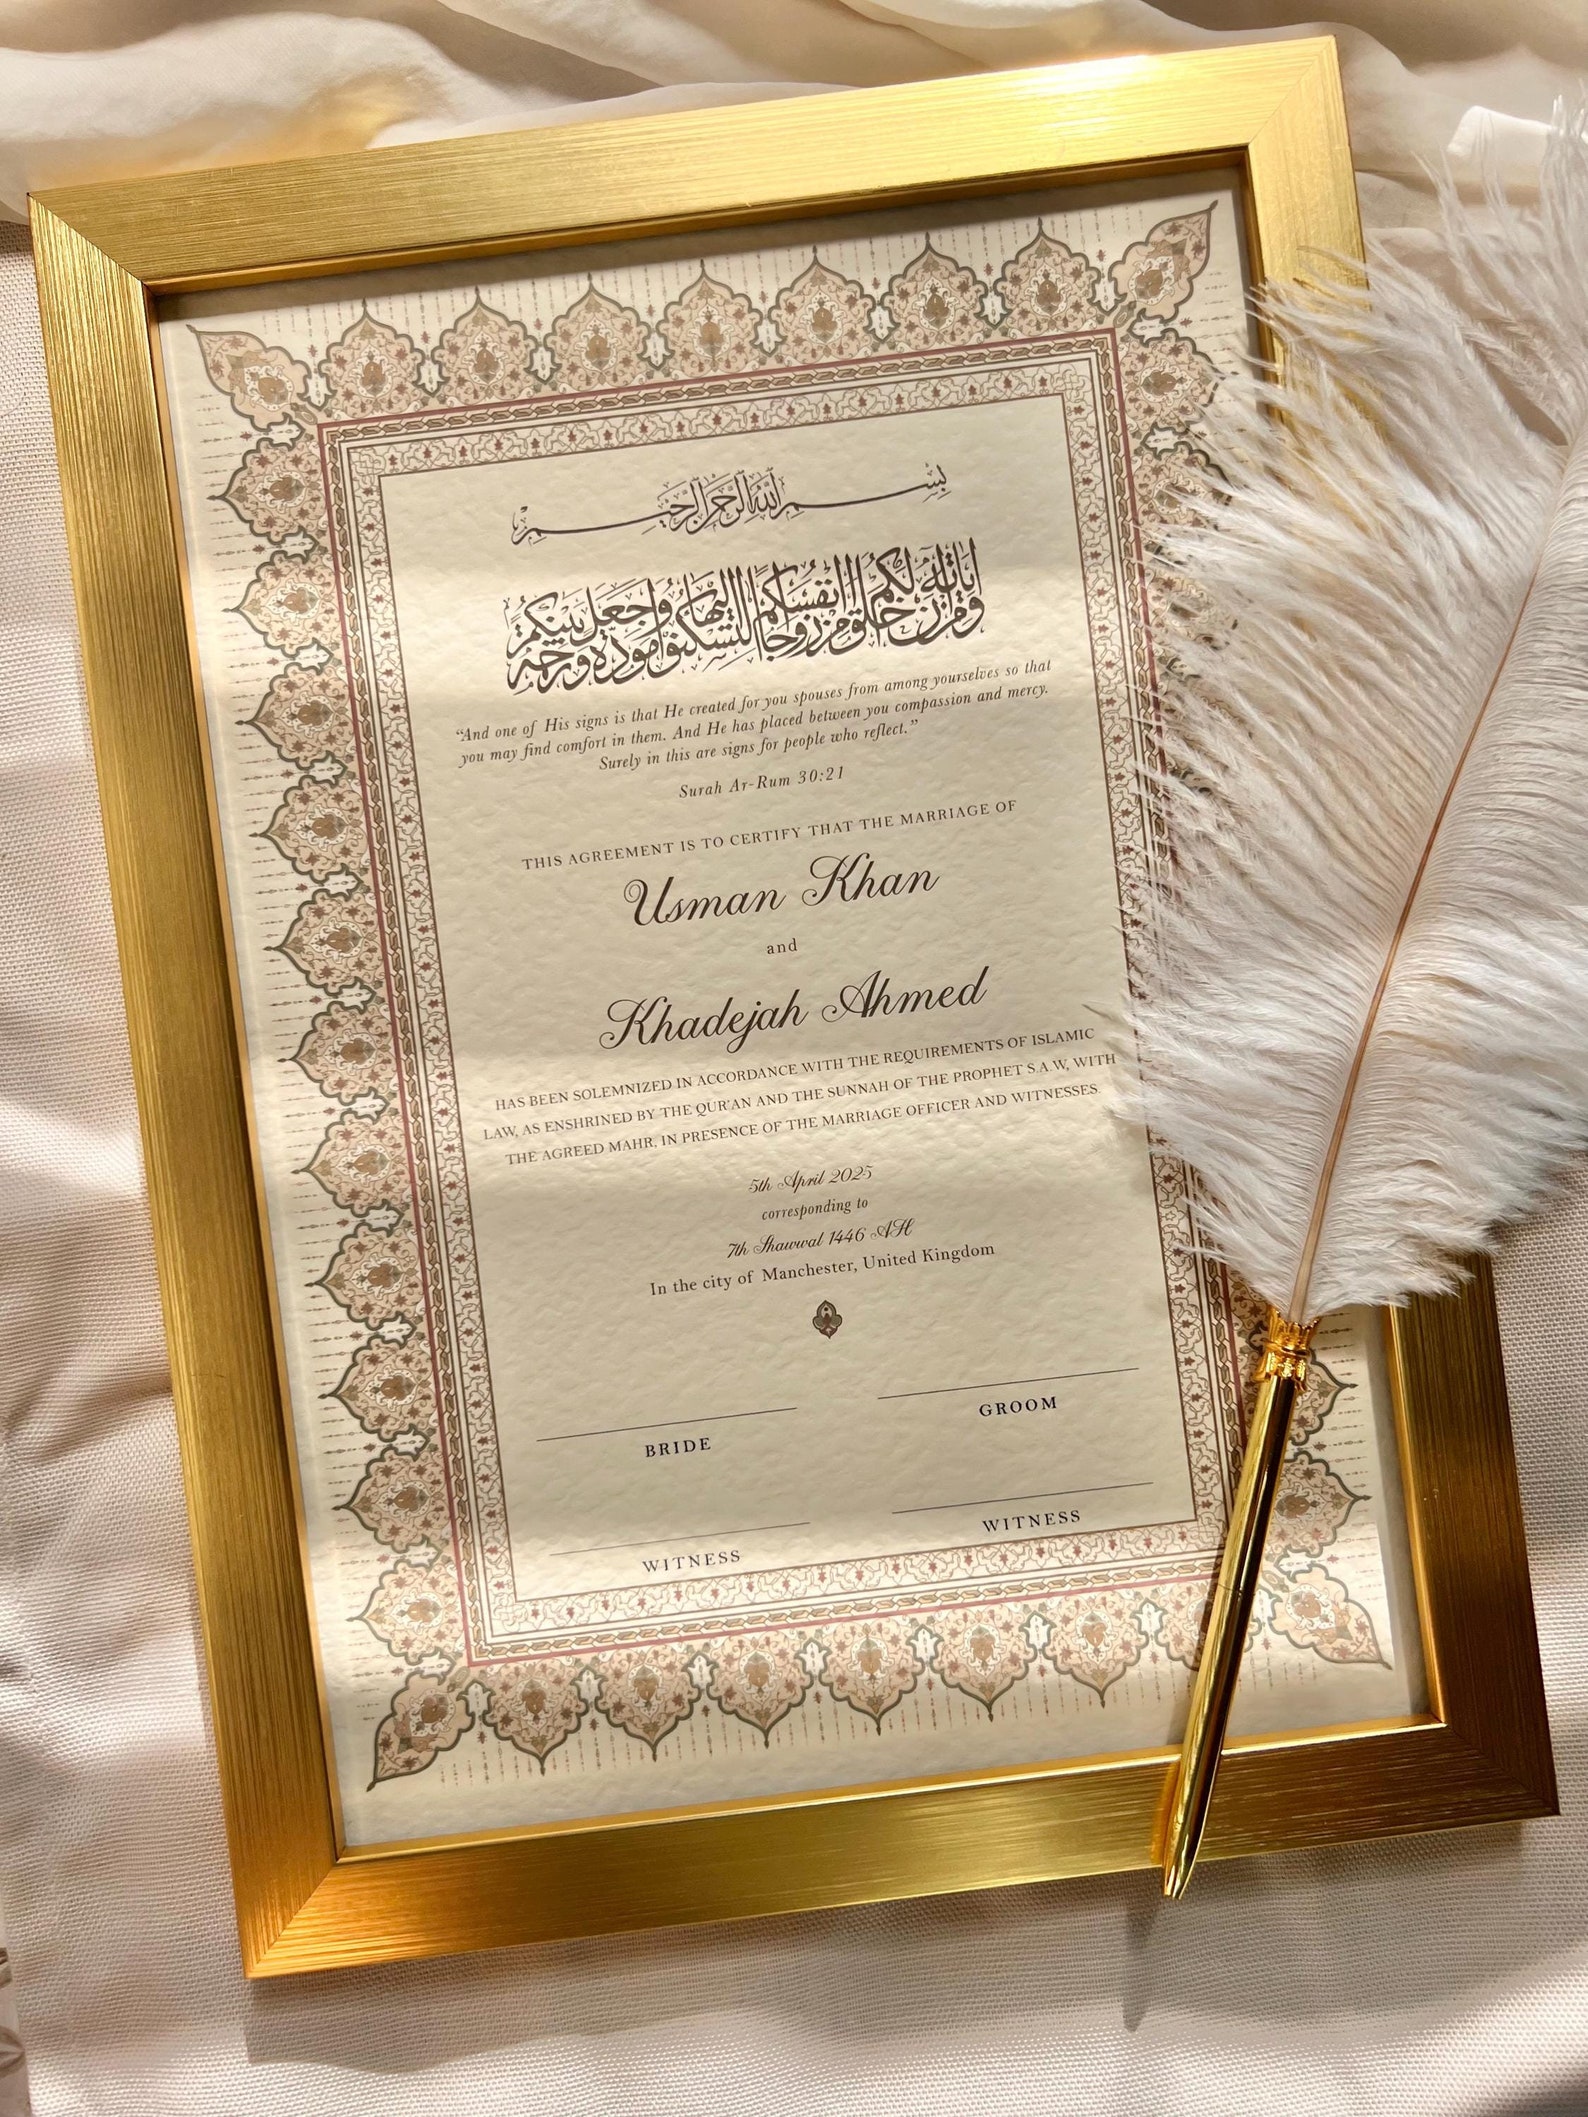 بسم الله الرحمن الرحيم
ومن آياته أن خلق لكم من أنفسكم أزواجا لتسكنوا إليها وجعل بينكم مودة ورحمة
“And one of His signs is that He created for you spouses from among yourselves so that
you may find comfort in them. And He has placed between you compassion and mercy.
Surely in this are signs for people who reflect.”
Surah Ar-Rum 30:21
THIS AGREEMENT IS TO CERTIFY THAT THE MARRIAGE OF
Usman Khan
and
Khadejah Ahmed
HAS BEEN SOLEMNIZED IN ACCORDANCE WITH THE REQUIREMENTS OF ISLAMIC
LAW, AS ENSHRINED BY THE QUR'AN AND THE SUNNAH OF THE PROPHET S.A.W, WITH
THE AGREED MAHR, IN PRESENCE OF THE MARRIAGE OFFICER AND WITNESSES.
5th April 2025
corresponding to
7th Shawwal 1446 AH
In the city of Manchester, United Kingdom
BRIDE
GROOM
WITNESS
WITNESS